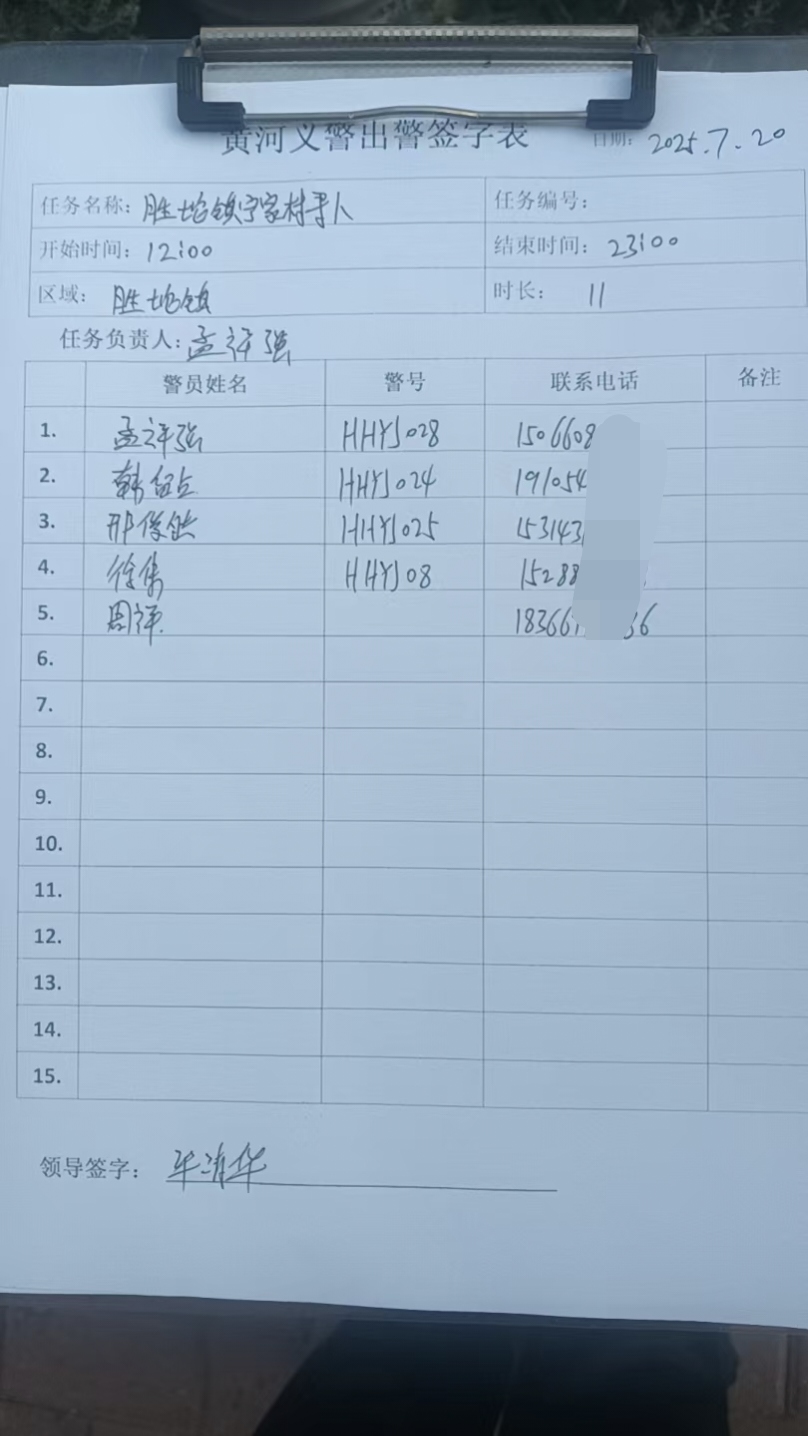 黄河义警出警签字表 日期: 2025.7.20
任务名称: 胜坨镇宁家村寻人 任务编号:
开始时间: 12:00 结束时间: 23:00
区域: 胜坨镇 时长: 11
任务负责人: 孟祥强
警员姓名 警号 联系电话 备注
1. 孟祥强 HHYJ028 1506608
2. 韩 HHYJ024 191054
3. 邢俊 HHYJ025 153143
4. 徐 HHYJ08 15288
5. 周祥 18366 36
6.
7.
8.
9.
10.
11.
12.
13.
14.
15.
领导签字: 清华